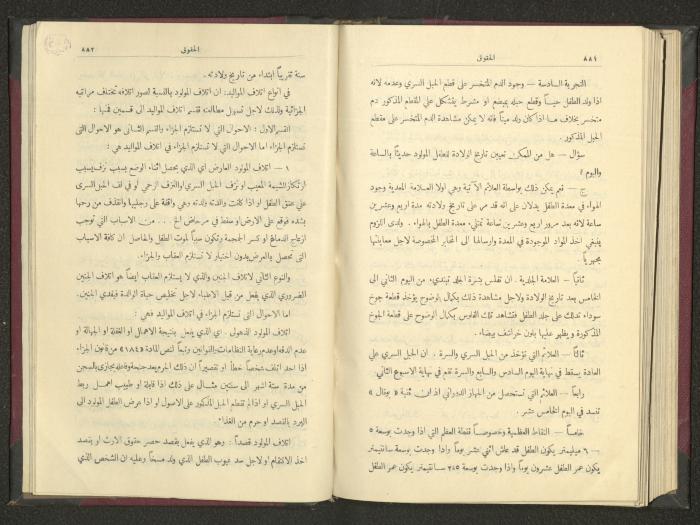 ٨٨١
الحقوق
التجربة السادسة — وجود الدم المتخثر على قطع الحبل السري وعدمه لانه
اذا ولد الطفل حياً وقطع حبله بمبضع او مشرط يتشكل على المقطع المذكور دم
متخثر بخلاف ما اذا كان ولد ميتاً فانه لا يمكن مشاهدة الدم المتخثر على مقطع
الحبل المذكور .
سؤال — هل من الممكن تعيين تاريخ الولادة للطفل المولود حديثاً بالساعة
واليوم ؟
ج — نعم يمكن ذلك بواسطة العلائم الآتية وهي اولا العلامة المعدية وجود
الهواء في معدة الطفل يدلان على انه قد مر على تاريخ ولادته مدة اربع وعشرين
ساعة لانه بعد مرور اربع وعشرين ساعة تمتلي معدة الطفل بالهواء . ولدى اللزوم
ينبغي اخذ المواد الموجودة في المعدة وارسالها الى المخابر المخصوصة لاجل معاينتها
مجهرياً .
ثانياً — العلامة الجلدية . ان تفلس بشرة الجلد تبتديء من اليوم الثاني الى
الخامس بعد تاريخ الولادة ولاجل مشاهدة ذلك بكمال الوضوح يؤخذ قطعة جوخ
سوداء تدلك على جلد الطفل فتشاهد تلك الفلوس بكمال الوضوح على قطعة الجوخ
المذكورة ويظهر عليها بلون خرائف بيضاء .
ثالثاً — العلائم التي تؤخذ من الحبل السري والسرة . ان الحبل السري على
العادة يسقط في نهاية اليوم السادس والسابع والسرة تقام في نهاية الاسبوع الثاني .
رابعاً — العلائم التي تستحصل من الجهاز الدوراني اذ ان ثقبة « بوتال »
تنسد في اليوم الخامس عشر .
خامساً — النقاط العظمية وخصوصاً نقطة العظم التي اذا وجدت بوسعة ٥
— ٦ ميليمتر يكون الطفل قد عاش اثني عشر يوماً واذا وجدت بوسعة سانتيمتر
يكون عمر الطفل عشرون يوماً واذا وجدت بوسعة ٢٤٥ سانتيمتر يكون عمر الطفل
الحقوق
٨٨٢
سنة تقريباً ابتداء من تاريخ ولادته .
في انواع اتلاف المواليد : ان اتلاف المولود بالنسبة لصور اتلافه تختلف مراتبه
الجزائية ولذلك لاجل تسهيل مطالعته تقسم اتلاف المواليد الى قسمين فمنها :
القسم الاول : الاحوال التي لا تستلزم الجزاء والقسم الثاني هو الاحوال التي
تستلزم الجزاء اما الاحوال التي لا تستلزم الجزاء في اتلاف المواليد هي :
١ — اتلاف المولود العارض اي الذي يحصل اثناء الوضع بسبب نزف يسبب
ارتكاز المشيمة المعيب او نزف الحبل السري او النزف الرحمي او في لف الحبل السري
على عنق الطفل او اذا كانت والدته ولدته وهي واقفة على رجليها وانقذف من رحمها
بشدة فوقع على الارض او سقط في مرحاض الخ . . . من الاسباب التي توجب
ازعاج الدماغ او كسر الجمجمة وتكون سبباً لموت الطفل والحاصل ان كافة الاسباب
التي تحصل بالعرض بدون اختيار لا تستلزم العقاب والجزاء .
والنوع الثاني لاتلاف الجنين والذي لا يستلزم العقاب ايضاً هو اتلاف الجنين
الضروري الذي يفعل من قبل الاطباء لاجل تخليص حياة الوالدة فيفدى الجنين .
اما الاحوال التي تستلزم الجزاء في اتلاف المواليد فهي :
اتلاف المولود الذهول . اي الذي يفعل بنتيجة الاهمال او الغفلة او الجهالة او
عدم الدقة او عدم رعاية النظامات والقوانين وتبعاً لنص المادة «١٨٤» من قانون الجزاء
اذا احد اتلف شخصاً خطأ او تقصيراً ان ذلك الجرم يعد جنحة وفاعله يجازى بالسجن
من مدة ستة اشهر الى سنتين مثال على ذلك اذا قابلة او طبيب اهمل ربط
الحبل السري او اذا لم تقطع الحبل المذكور على الاصول او اذا عرض الطفل المولود الى
البرد بالقصد او حرم من الغذاء .
اتلاف المولود قصداً : وهو الذي يفعل بقصد حصر حقوق الارث او بقصد
اخذ الانتقام او لاجل سد عيوب الطفل الذي ولد مسخاً وعليه ان الشخص الذي